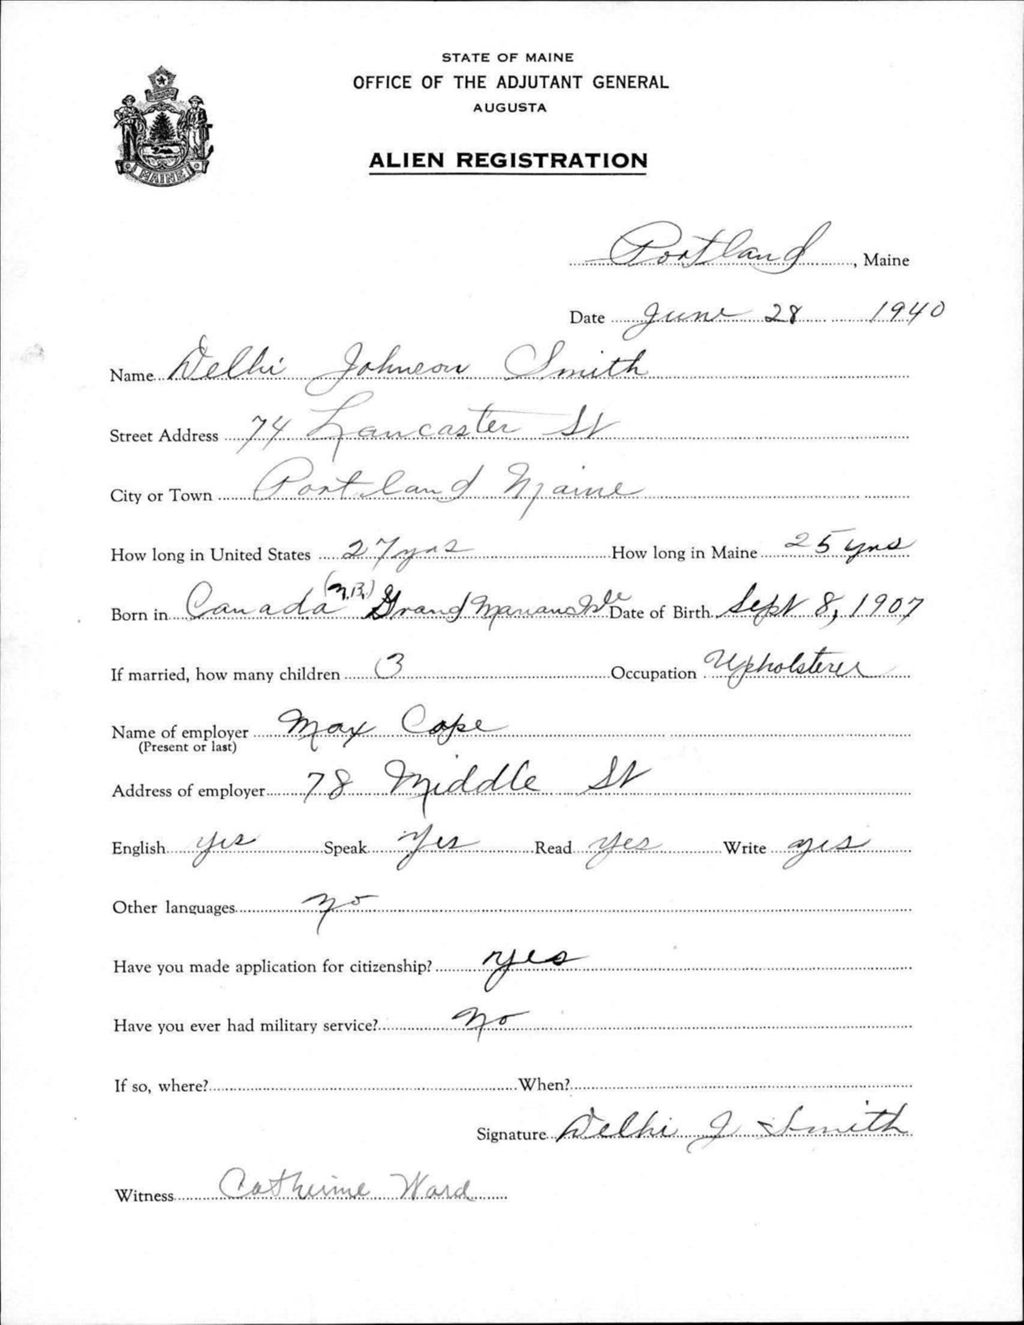 STATE OF MAINE
OFFICE OF THE ADJUTANT GENERAL
AUGUSTA
ALIEN REGISTRATION
MAINE
Portland, Maine
Date June 28 1940
Name Delhi Johnson Smith
Street Address 74 Lancaster St
City or Town Portland Maine
How long in United States 27 yrs How long in Maine 25 yrs
Born in Canada (N.B.) Grand Manan Isle Date of Birth Sept 8, 1907
If married, how many children 3 Occupation Upholsterer
Name of employer Max Cope
(Present or last)
Address of employer 78 Middle St
English yes Speak Yes Read yes Write yes
Other languages no
Have you made application for citizenship? yes
Have you ever had military service? No
If so, where? When?
Signature Delhi J Smith
Witness Catherine Ward